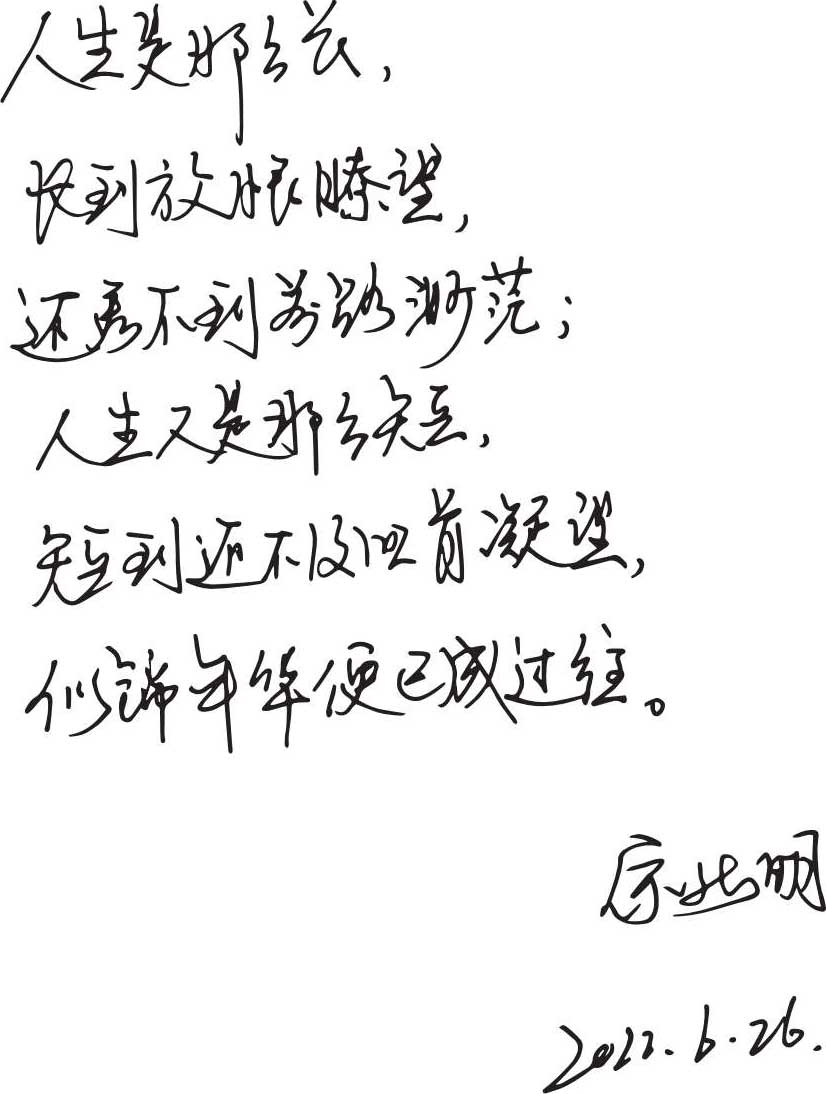 人生是那么长,
长到放眼瞭望,
还看不到前路渺茫;
人生又是那么短,
短到还不及回首凝望,
似锦年华便已成过往。
明
2022.6.26.